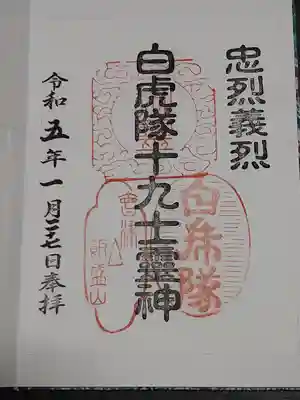 忠烈義烈
白虎隊十九士霊神
令和五年一月二七日奉拝
白虎隊
會津
飯盛山